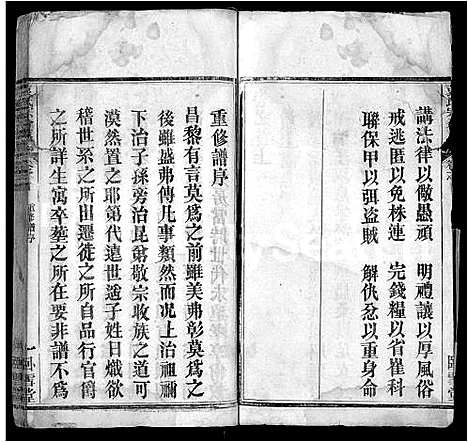 講法律以儆愚頑　明禮讓以厚風俗
戒逃匿以免株連　完錢糧以省崔科
聯保甲以弭盜賊　解仇忿以重身命
重修譜序
昌黎有言莫為之前雖美弗彰莫為之
後雖盛弗傳凡事類然而况上治祖禰
下治子孫旁治昆弟敬宗收族之道可
漠然置之耶第代遠世遙子姓日熾欲
稽世系之所由遷徙之所自品行官爵
之所詳生寓卒塟之所在要非譜不為
重修譜序
一
臥雪堂